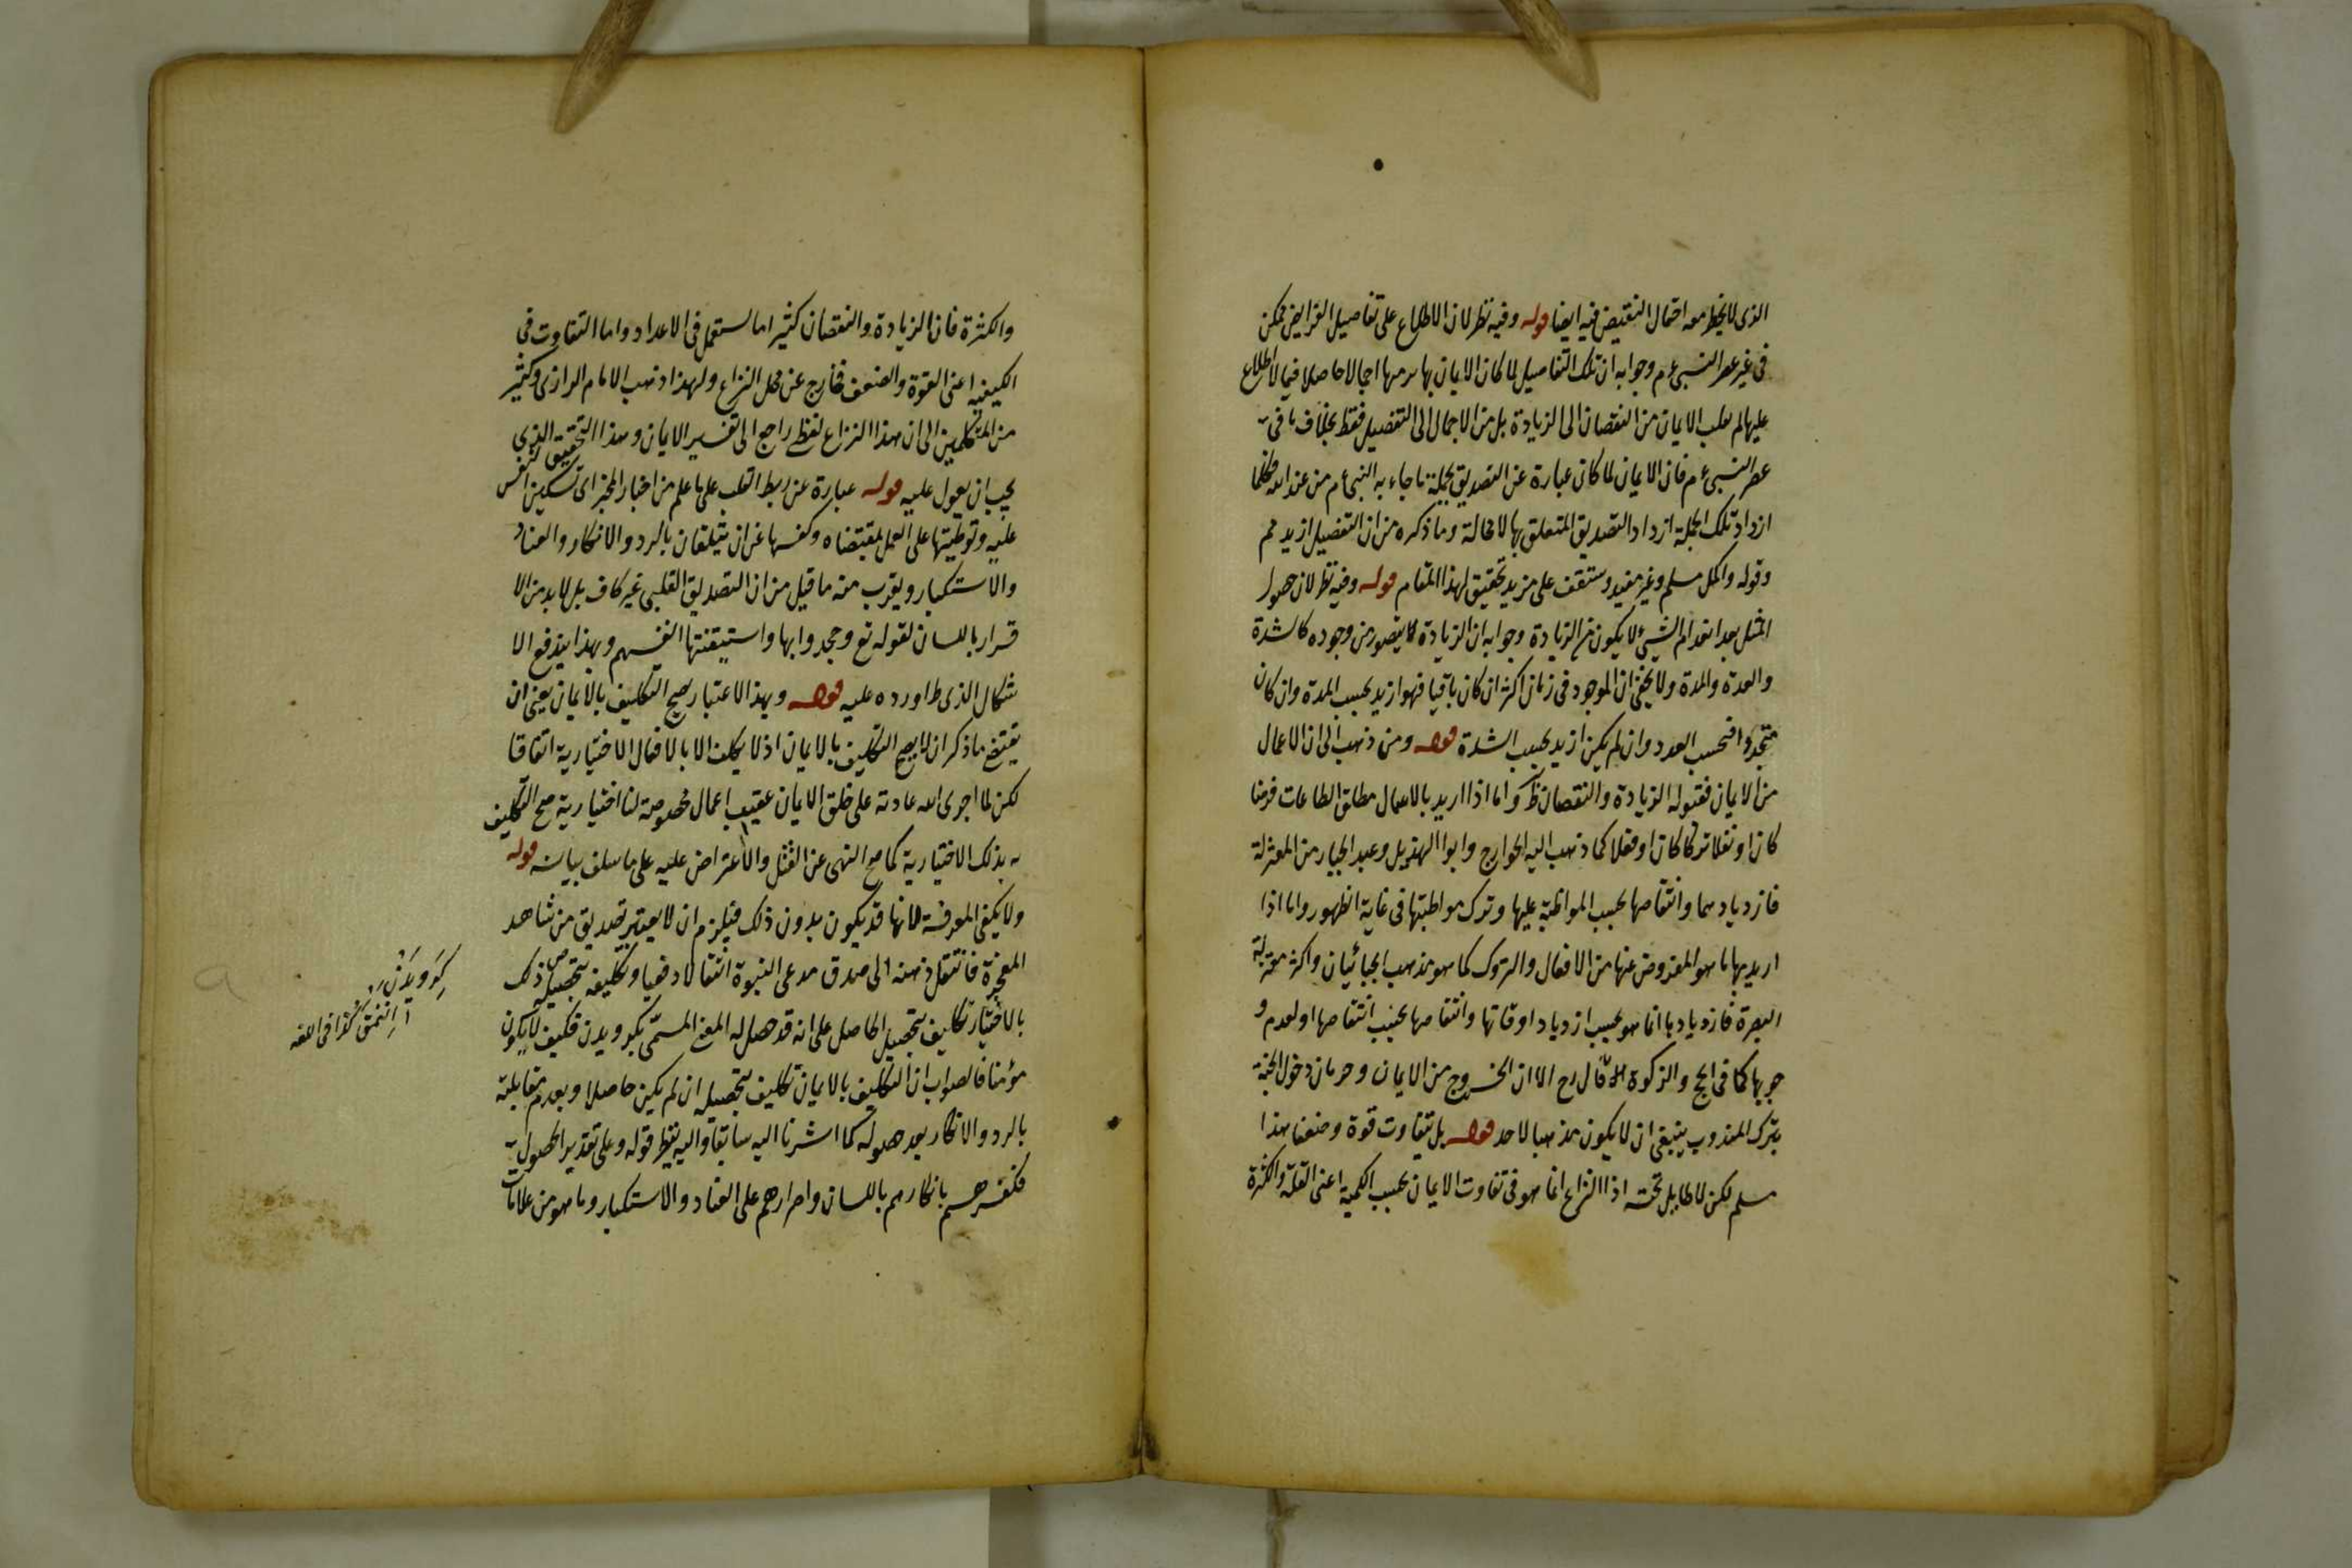 الذى لا يخطر معه احتمال النقيض فيه ايضا قوله وفيه نظر لان الاطلاع على تفاصيل الفرايض ممكن
فى غير عصر النبى عم وجوابه ان تلك التفاصيل لما كان الايمان بها برمتها اجمالا حاصلا فبالاطلاع
عليها لم ينقلب الايمان من النقصان الى الزيادة بل من الاجمال الى التفصيل فقط بخلاف ما فى
عصر النبى عم فان الايمان لما كان عبارة عن التصديق بجملة ما جاء به النبى عم من عند الله فكلما
ازداد تلك الجملة ازداد التصديق المتعلق بها لا محالة وما ذكره من ان التفصيل ازيد مم
وقوله واكمل مسلم وغير مفيد وستقف على مزيد تحقيق لهذا المقام قوله وفيه نظر لان حصول
المثل بعد انعدام الشيئ لا يكون من الزيادة وجوابه ان الزيادة لا يتصور من وجوده كالشدة
والعدة والمدة ولا يخفى ان الموجود فى زمان اكثر ان كان باقيا فهو ازيد بحسب المدة وان كان
متجددا فبحسب العدد وان لم يكن ازيد بحسب الشدة قوله ومن ذهب الى ان الاعمال
من الايمان فقبوله الزيادة والنقصان ظ واما اذا اريد بالاعمال مطلق الطاعات فرضا
كان او نفلا تركا كان او فعلا كما ذهب اليه الخوارج وابو الهذيل وعبد الجبار من المعتزلة
فازديادهما وانتقاصها بحسب المواظبة عليها وترك مواظبتها فى غاية الظهور واما اذا
اريد بها ما هو المفروض عنها من الافعال والتروك كما هو مذهب الجبائيان واكثر معتزلة
البصرة فازديادها انما هو بحسب ازدياد اوقاتها وانتقاصها بحسب انتقاصها او لعدم و
جوبها كما فى الحج والزكوة الا قال رح الا ان الخروج من الايمان وحرمان دخول الجنة
بترك المندوب ينبغى ان لا يكون مذهبا لاحد قوله بل تتفاوت قوة وضعفا هذا
مسلم لكن لا طايل تحته اذ النزاع انما هو فى تفاوت الايمان بحسب الكمية اعنى القلة والكثرة
والكثرة فان الزيادة والنقصان كثيرا ما يستعمل فى الاعداد واما التفاوت فى
الكيفية اعنى القوة والضعف فخارج عن محل النزاع ولهذا ذهب الامام الرازى وكثير
من المتكلمين الى ان هذا النزاع لفظى راجع الى تفسير الايمان وهذا التحقيق الذى
يجب ان يعول عليه قوله عبارة عن ربط القلب على ما علم من اخبار المخبر اى تسكين النفس
عليه وتوطينها على العمل بمقتضاه وكفها عن ان يتلقان بالرد والانكار والعناد
والاستكبار ويقرب منه ما قيل من ان التصديق القلبى غير كاف بل لابد من الا
قرار باللسان لقوله تع وجحدوا بها واستيقنتها انفسهم وبهذا يندفع الا
شكال الذى اورده عليه قوله وبهذا الاعتبار يصح التكليف بالايمان يعنى ان
يقتضى ما ذكر ان لا يصح التكليف بالايمان اذ لا يكلف الا بالافعال الاختيارية اتفاقا
لكن لما اجرى الله عادته على خلق الايمان عقيب اعمال مخصوصة لنا اختيارية صح التكليف
به بذلك الاختيارية كما صح النهى عن القتل والاعتراض عليه على ما سلف بيانه قوله
ولا يكفى المعرفة لانها قد يكون بدون ذلك فيلزم ان لا يعتبر تصديق من شاهد
المعجزة فانتقل ذهنه الى صدق مدعى النبوة انتقالا دفعيا وتكليفه بتحصيل ذلك
بالاختيار تكليف بتحصيل الحاصل على انه قد حصل له المعنى المسمى بكرويدن فكيف لا يكون
مؤمنا فالصواب ان التكليف بالايمان تكليف بتحصيله ان لم يكن حاصلا وبعدم مقابلته
بالرد والانكار بعد حصوله كما اشرنا اليه سابقا واليه ينظر قوله وعلى تقدير الحصول
فكفرهم بانكارهم باللسان واصرارهم على العناد والاستكبار وما هو من علامات
كرويدن
كذا فى اللغه